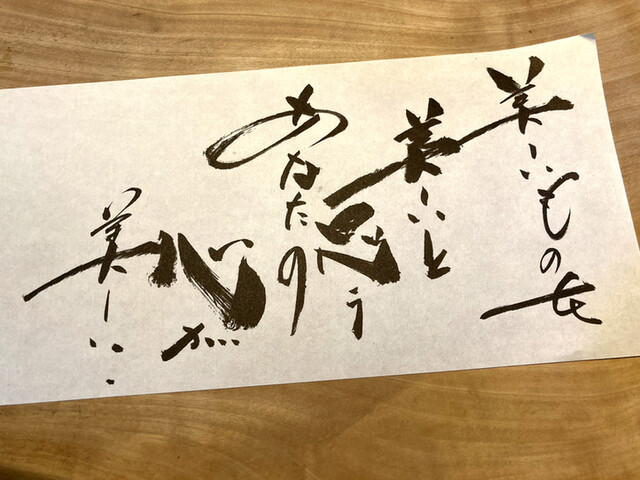 美しいものを
美しいと
思う
あなたの
心が
美しい